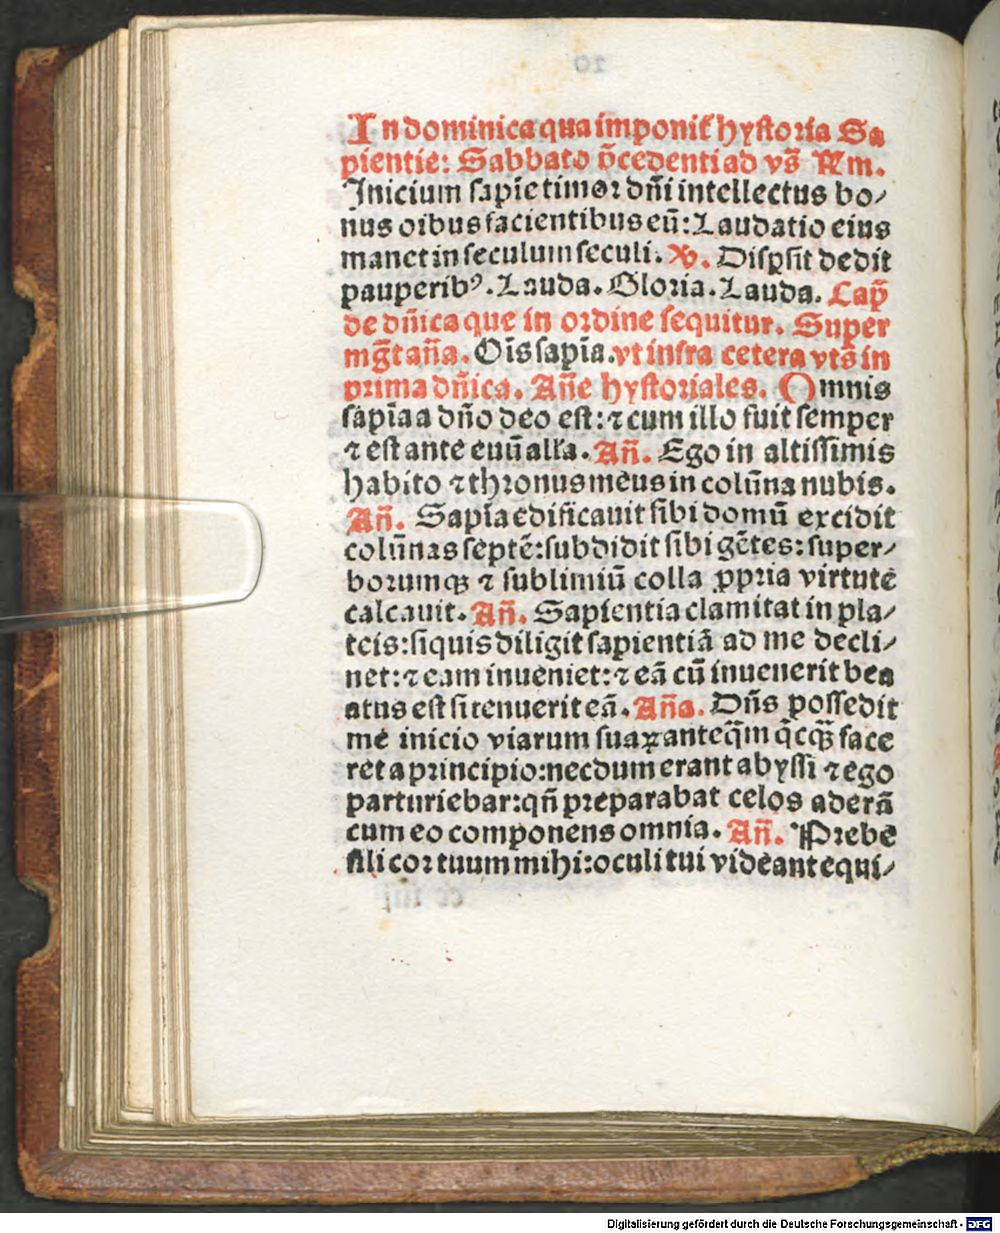 In dominica qua imponit᷑ hystoria Sa
pientie: Sabbato p̄cedenti ad vs̄ Rm.
Inicium sapīe timor dn̄i intellectus bo⸗
nus oībus facientibus eū: Laudatio eius
manet in seculum seculi. Xv. Disꝑsit dedit
pauperibꝰ. Lauda. Gloria. Lauda. Cap̄
de dn̄ica que in ordine sequitur. Super
mḡt an̄a. Oīs sapīa. vt infra cetera vts̄ in
prima dn̄ica. An̄e hystoriales. Omnis
sapīa a dn̄o deo est: ⁊ cum illo fuit semper
⁊ est ante euū alla. An̄. Ego in altissimis
habito ⁊ thronus meus in colūna nubis.
An̄. Sapīa edificauit sibi domū excidit
colūnas septē: subdidit sibi gētes: super⸗
borumqꝫ ⁊ sublimiū colla ꝓpria virtute
calcauit. An̄. Sapientia clamitat in pla⸗
teis: siquis diligit sapientiā ad me decli⸗
net: ⁊ eam inueniet: ⁊ eā cū inuenerit bea
atus est si tenuerit eā. An̄a. Dn̄s possedit
me inicio viarum suaꝝ anteq̄m q̄cqꝫ face
ret a principio: necdum erant abyssi ⁊ ego
parturiebar: qn̄ preparabat celos aderā
cum eo componens omnia. An̄. Prebe
fili cor tuum mihi: oculi tui videant equi⸗
Digitalisierung gefördert durch die Deutsche Forschungsgemeinschaft - DFG